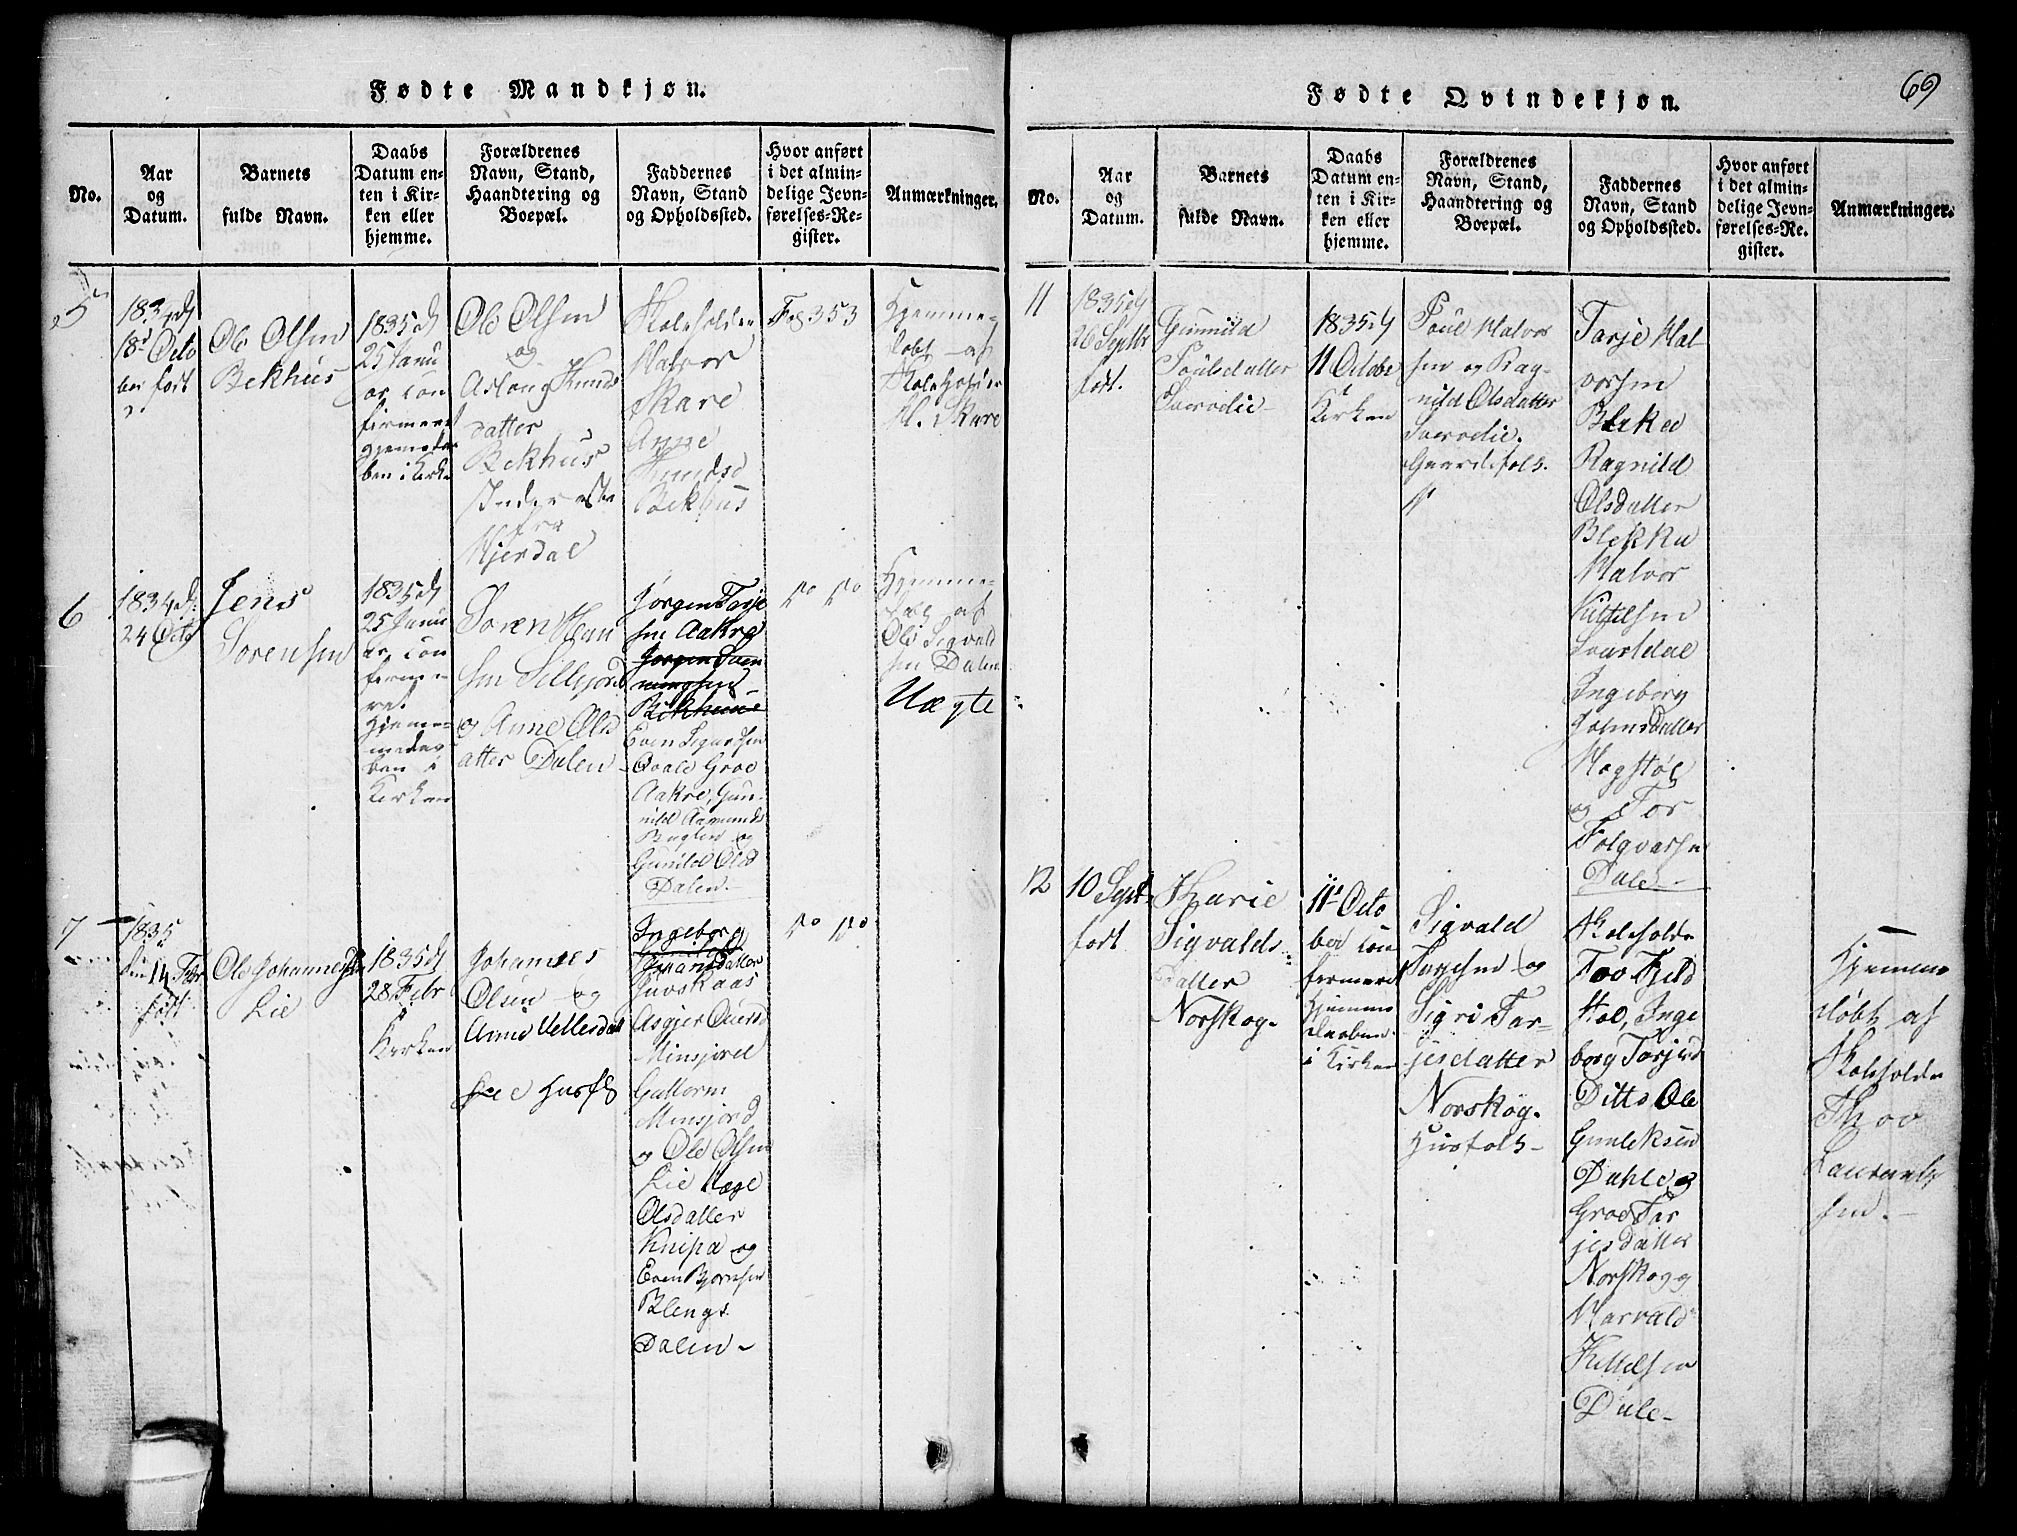 69
Fødte Mandkjøn.
No.
Aar
og
Datum.
Barnets
fulde Navn.
Daabs
Datum en-
ten i Kir-
ken eller
hjemme.
Forældrenes
Navn, Stand,
Haandtering og
Boepæl.
Faddernes
Navn, Stand
og Opholdssted.
Hvor anført
i det almin-
delige Jevn-
førelses-Re-
gister.
Anmærkninger.
5
1834 d
18d Octo
ber født
Ole Olsen
Bekhus
1835 d
25 Janu
ar con
firmeret
hjemeda
ben i Kirke
Ole Olsen
og
Aslaug Knuds
datter
Bekhus
Inderæste
fra
Hjerdal
Skoleholder
Halvor
Skare
Anne
Knudsd
Bekhus
Fol 353
Hjemme-
døbt af
Skoleholder
H. Skare
6
1834 d.
24 Octo
Jens
Sorensen
1835 d
25 Janu
ar, con
firme
ret
Hjemme
medaa
ben i
Kirken
Soren Han
sen Sillejord
og Anne Ols
datter Dalen
Jørgen Tarje
sen Aakre
Jørgen Sven
nungsen
Bekhuus
Even Sigurdsen
Qvale Groe
Aakre, Gun-
nild Aamunds
Baglen og
Gunild Olsd
Dalen
do do
Hjemme-
døbt af
Ole Sigvald
sen Dalen
Uægte
7
1835
den 14 Febr
født
Ole Johannessen
Lie
1835 d
28 Febr
i
Kirken
Johannes
Olsen og
Anne Vetlesdatt
Lie Husf
Ingeborg
Johansdatter
Juvskaas
Asgjer Ouersd
Minsjord
Guttorm
Minsjord
og Ole Olsen
Lie Aage
Olsdatter
Knipa og
Even Bjornsen
Blengs
Dalen
do do
Fødte Qvindekjøn.
No.
Aar
og
Datum.
Barnets
fulde Navn.
Daabs
Datum en-
ten i Kir-
ken eller
hjemme.
Forældrenes
Navn, Stand,
Haandtering og
Boepæl.
Faddernes
Navn, Stand
og Opholdssted.
Hvor anført
i det almin-
delige Jevn-
førelses-Re-
gister.
Anmærkninger.
11
1835 d
26 Septbr
født.
Gunnild
Poulsdatter
1835 d
11 Octobe
i
Kirken
Poul Halvor
sen og Rag-
nild Olsdatter
Gaardefolk.
Tarje Hal
vorsen
Blekka
Ragnild
Olsdatter
Blekka
Halvor
Kittelsen
Svartdal
Ingeborg
Johnsdatter
Hagstøl
og Tor
Folqvarsen
Dale
12
10 Sept
født
Karie
Sigvalds-
datter
Norskog-
11 Octo
ber con
firmeret
Hjemme
daaben
i Kirken
Sigvald
Tarjesen og
Sigri Tar-
jesdatter
Norskog-
Husfolk-
Skoleholde
Tov Kield
dal, Inge
borg Tarjesd
Ditto Ole
Gunleksen
Dahle og
Groe Tar
jesdatter
Norskog
Harvald
Kittelsen
Dale-
Hjemme
døbt af
Skoleholde
Thov
Lauvants
sen.-